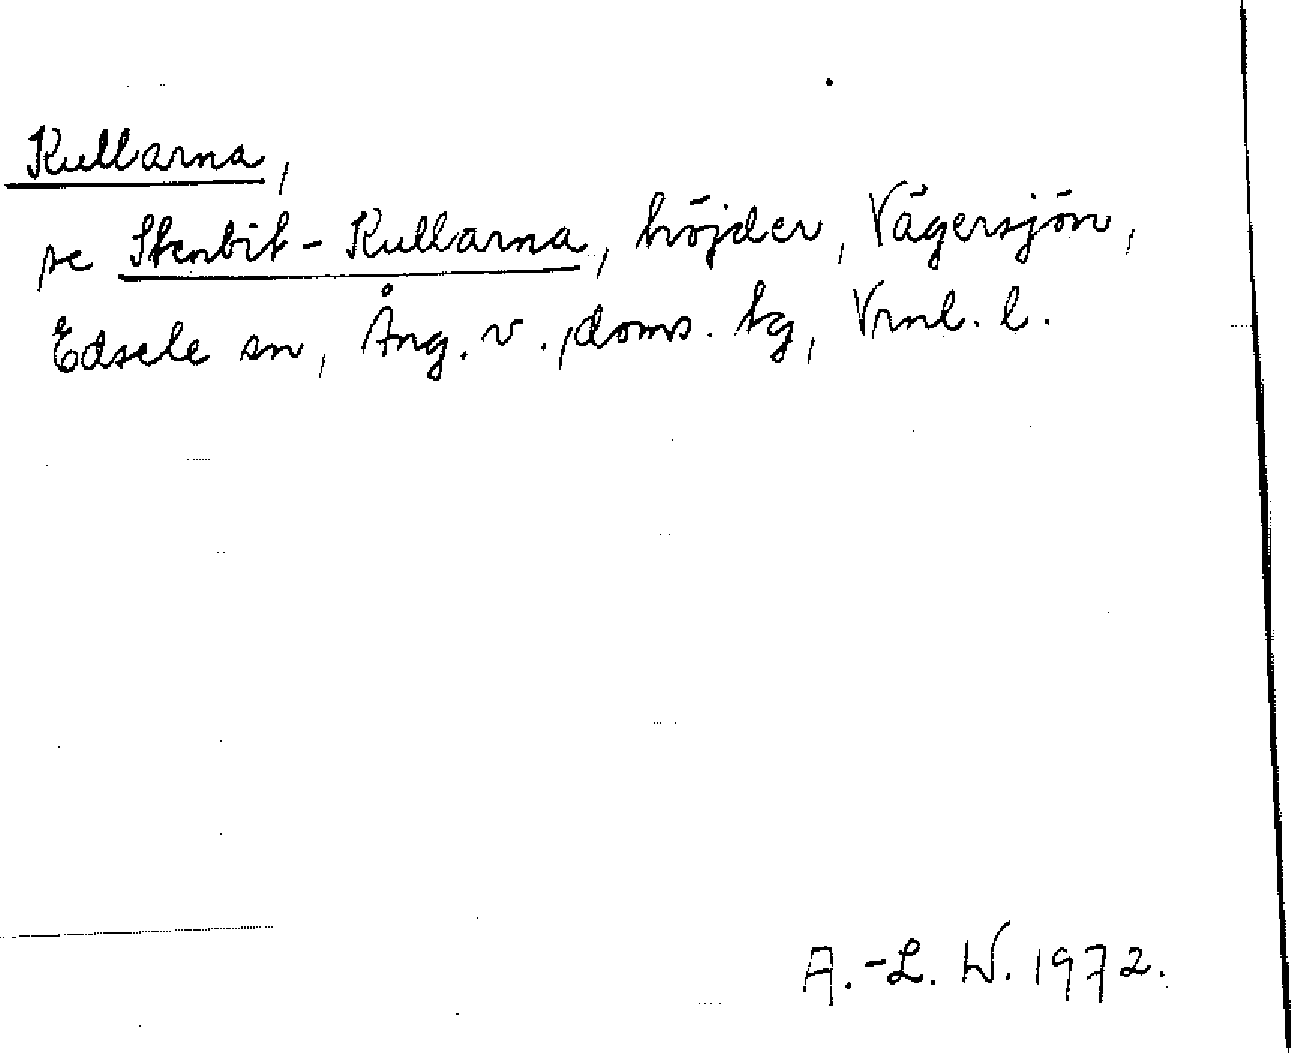 Kullarna,
se Stenbit-Kullarna, höjder, Vägersjön,
Edsele sn, Ång. v., doms. tg, Vrnl. l.
A.-L. W. 1972.